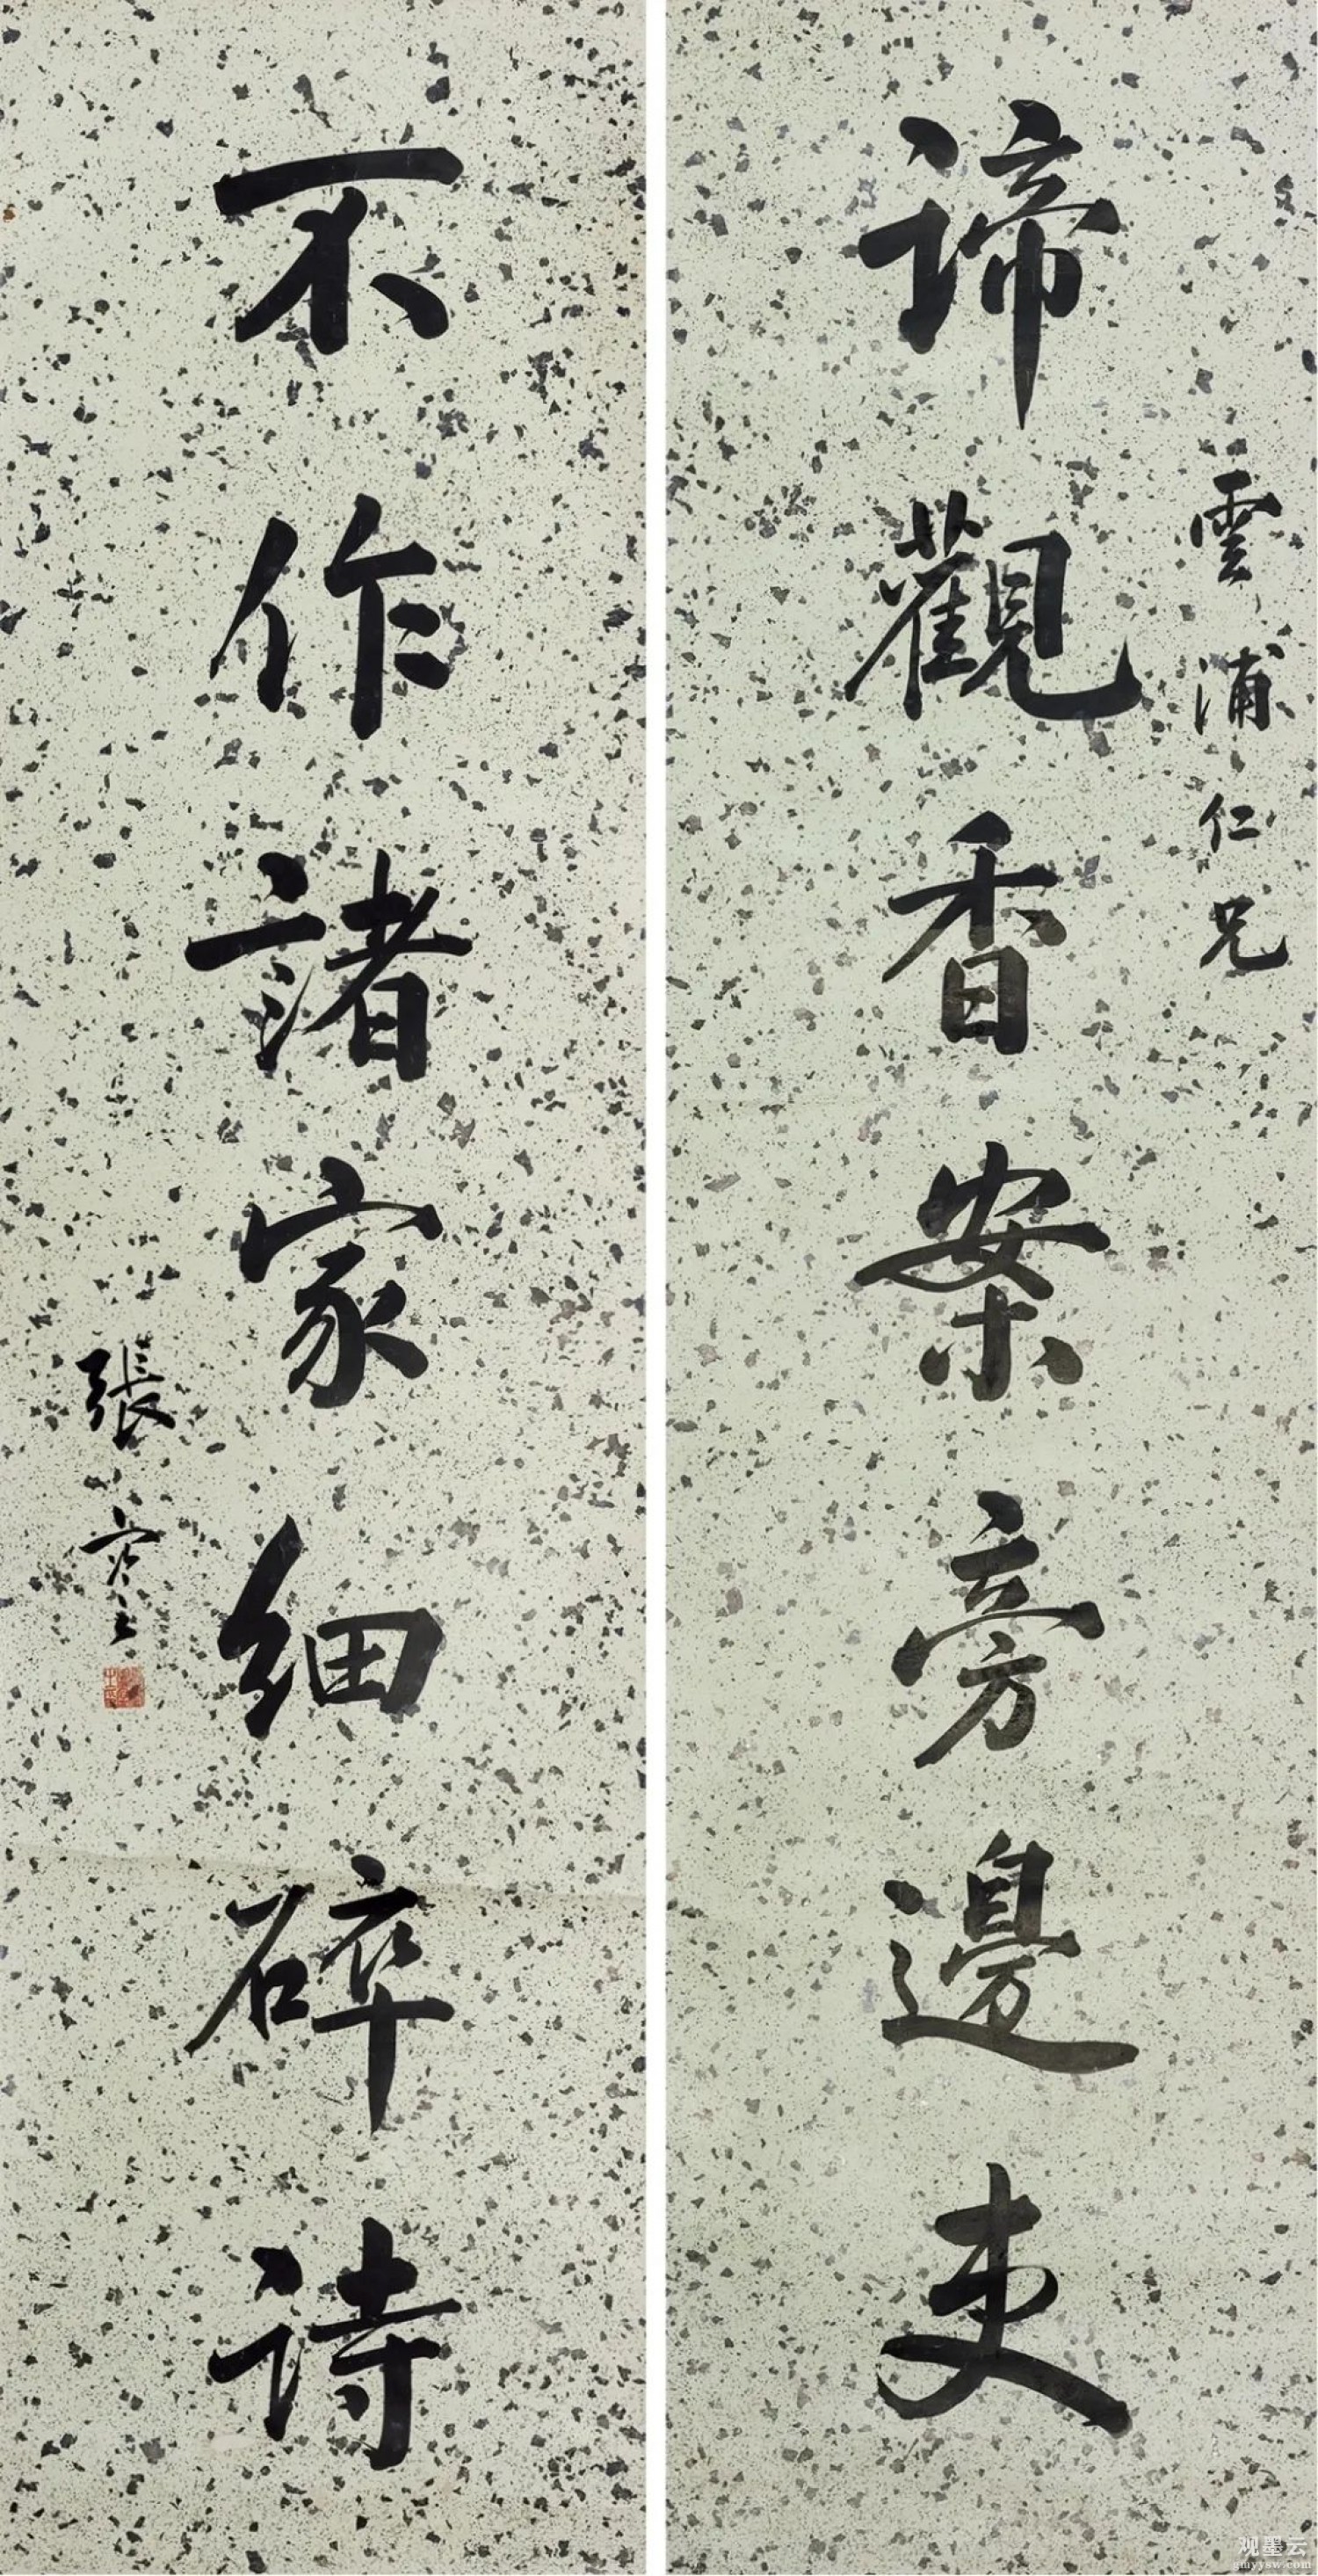 雲浦仁兄
諦觀香案旁邊吏
不作諸家細碎詩
張謇
观墨云
gmyysw.com